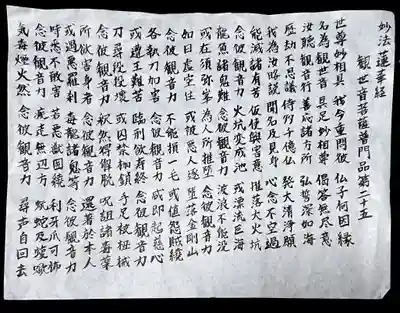 妙法蓮華経
観世音菩薩普門品第二十五
世尊妙相具 我今重問彼 仏子何因縁
名為観世音 具足妙相尊 偈答無尽意
汝聴観音行 善応諸方所 弘誓深如海
歴劫不思議 侍多千億仏 発大清浄願
我為汝略説 聞名及見身 心念不空過
能滅諸有苦 仮使興害意 推落大火坑
念彼観音力 火坑変成池 或漂流巨海
龍魚諸鬼難 念彼観音力 波浪不能没
或在須弥峯 為人所推堕 念彼観音力
如日虚空住 或被悪人逐 堕落金剛山
念彼観音力 不能損一毛 或値怨賊繞
各執刀加害 念彼観音力 咸即起慈心
或遭王難苦 臨刑欲寿終 念彼観音力
刀尋段段壊 或囚禁枷鎖 手足被杻械
念彼観音力 釈然得解脱 呪詛諸毒薬
所欲害身者 念彼観音力 還著於本人
或遇悪羅刹 毒龍諸鬼等 念彼観音力
時悉不敢害 若悪獣囲繞 利牙爪可怖
念彼観音力 疾走無辺方 蚖蛇及蝮蠍
気毒煙火然 念彼観音力 尋声自回去